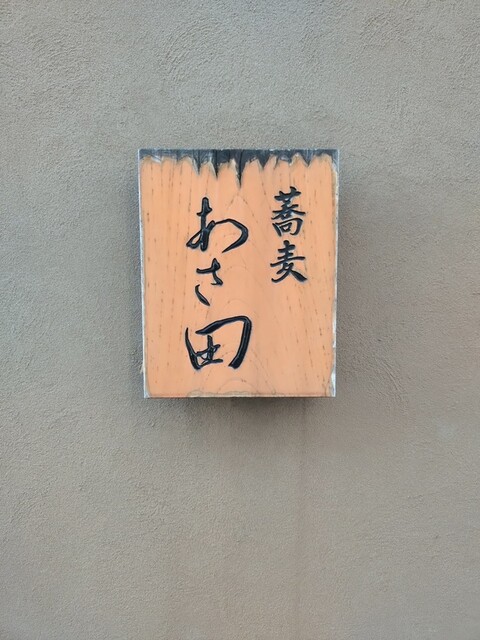 蕎麦
あさ田